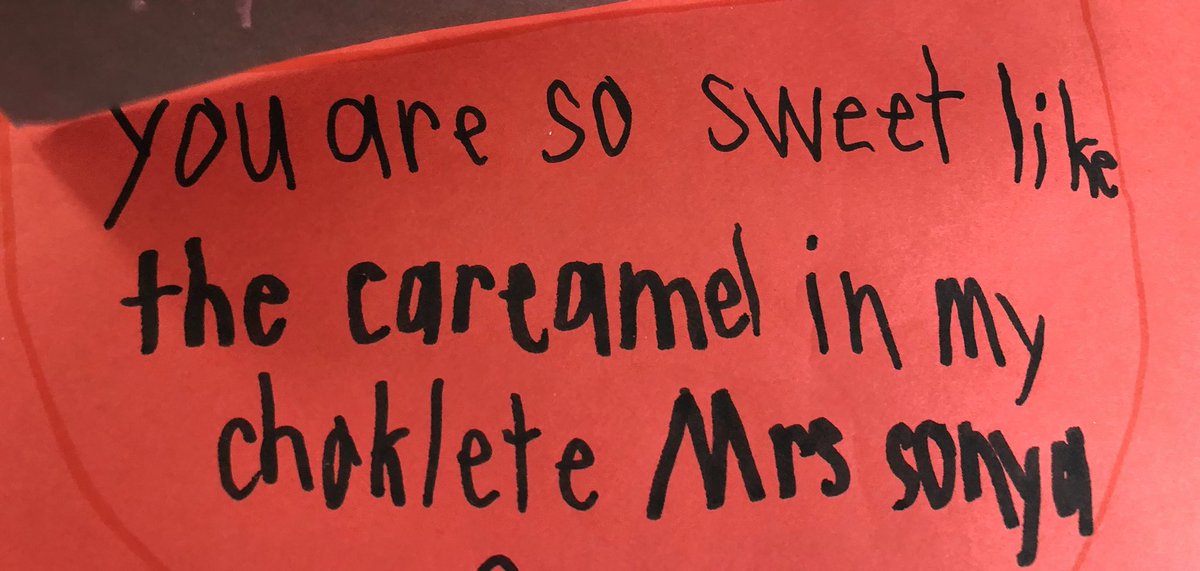 you are so sweet like
the careamel in my
choklete Mrs sonya